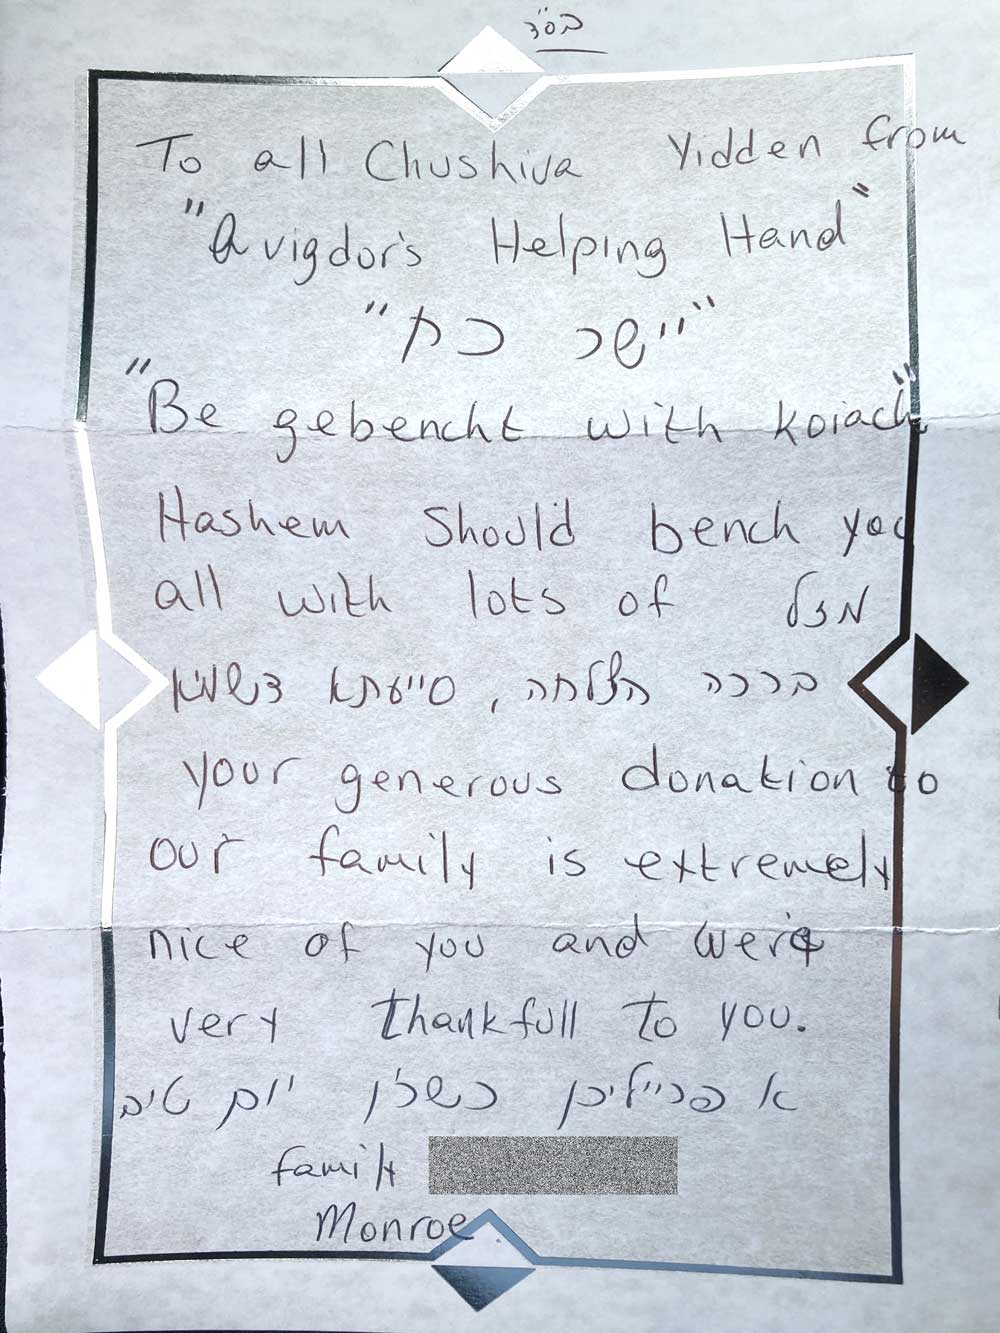 בס"ד
To all Chushiva Yidden from
"Avigdor's Helping Hand"
"יישר כח"
"Be gebencht with koiach"
Hashem should bench you
all with lots of מזל
ברכה הצלחה, סייעתא דשמיא
your generous donation to
our family is extremely
nice of you and we're
very thankfull to you.
א פרייליכן כשר'ן יום טוב
family
Monroe